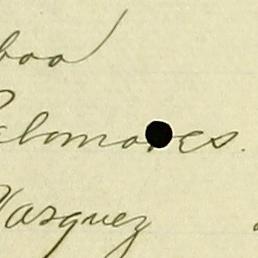 Palomares.
Vasquez